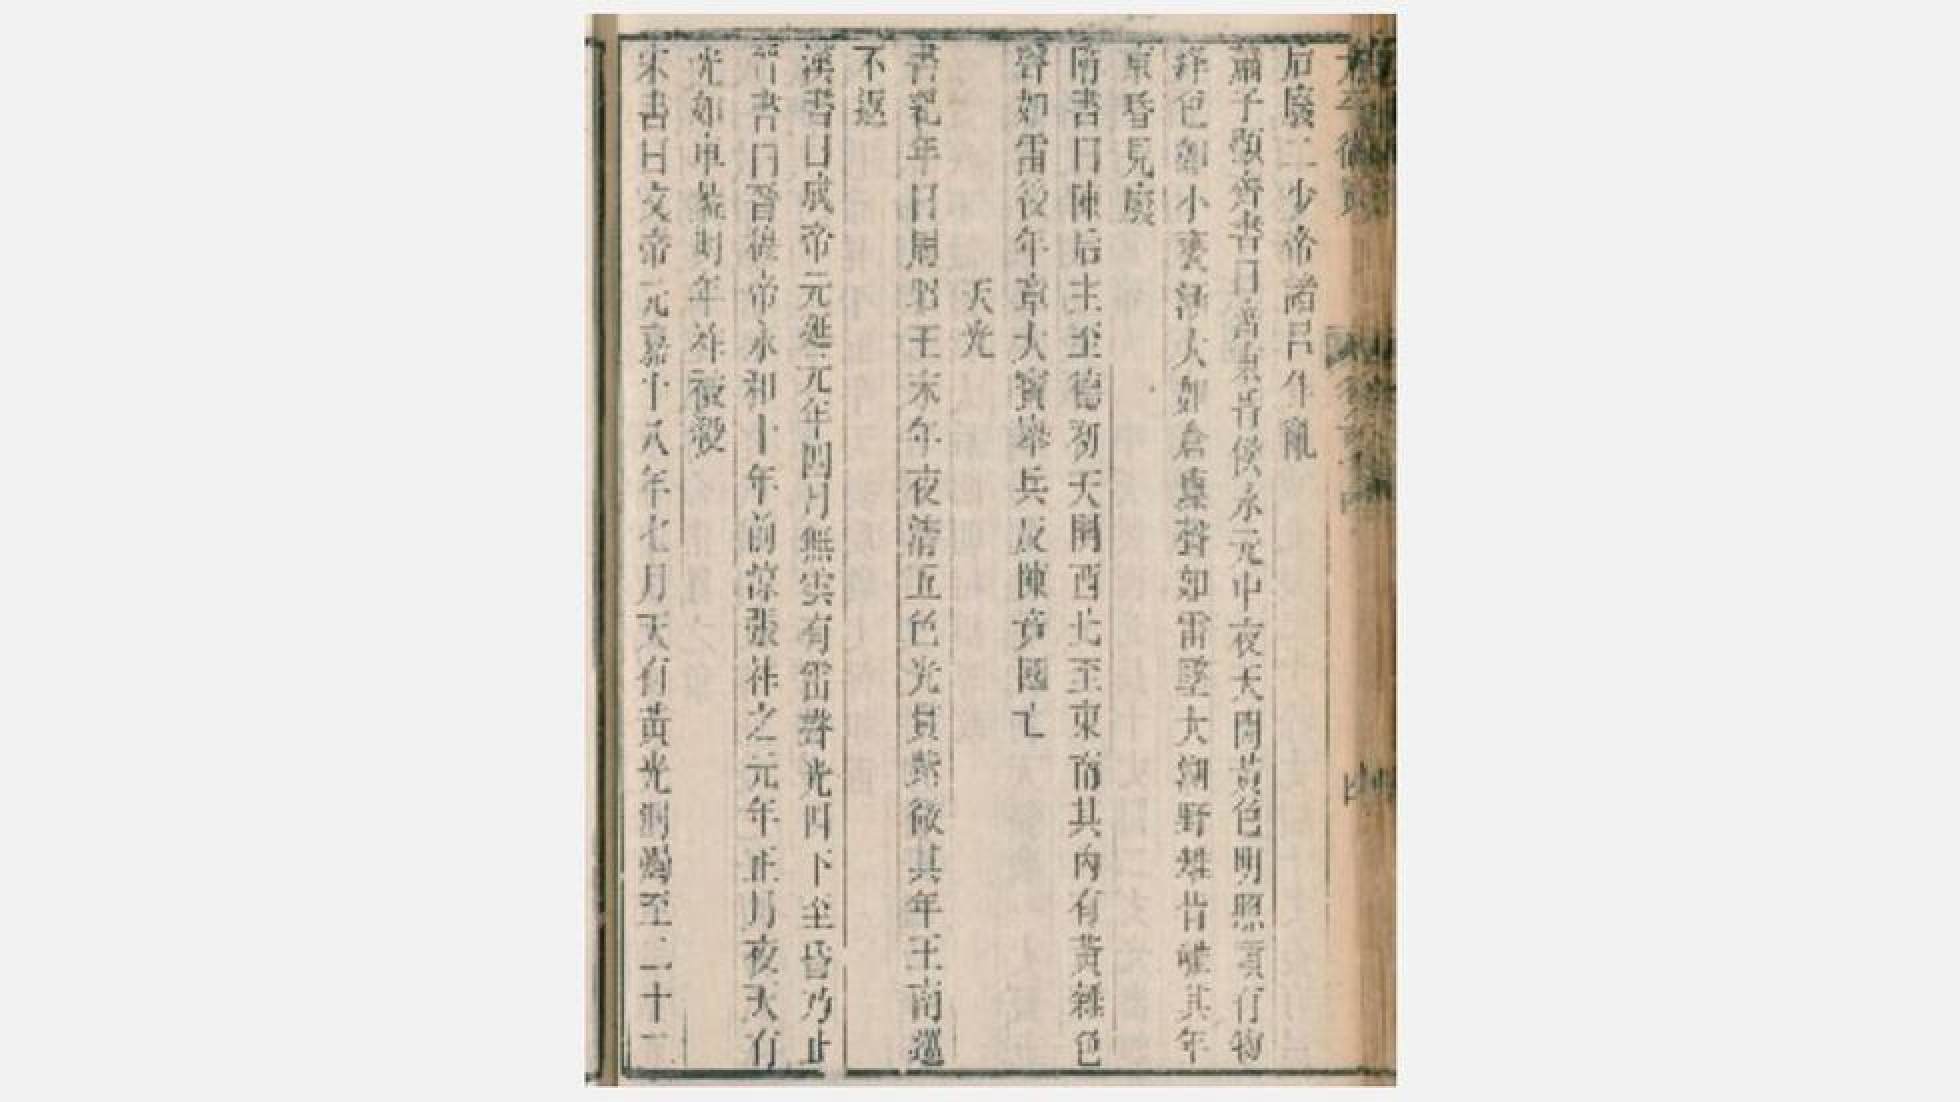 后廢二少帝諸呂作亂
蕭子顯齊書曰齊東昏侯永元中夜天開黃色明照須有物
絳色如小甕漸大如倉廩聲如雷墜大湖野雉皆雊其年
東昏見廢
隋書曰陳后主至德初天開西北至東南其內有黃雜色
聲如雷後年章大寶舉兵反陳
國亡
天光
書紀年曰周昭王末年夜清五色光貫紫微其年王南巡
不返
漢書曰成帝元延元年四月無雲有雷聲光四下至昏乃止
晉書曰晉穆帝永和十年前涼張祚之元年正月夜天有
光如車蓋明年祚被殺
宋書曰文帝元嘉十八年七月天有黃光洞燭至二十二